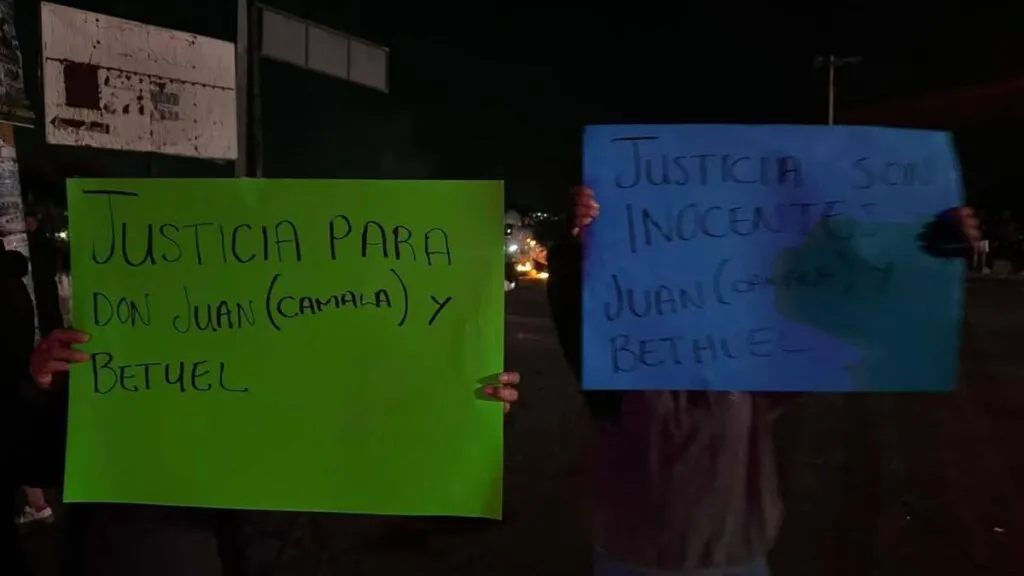 JUSTICIA PARA
DON JUAN (CAMALA) Y
BETUEL
JUSTICIA SON
INOCENTES
JUAN (CAMALA) Y
BETHUEL